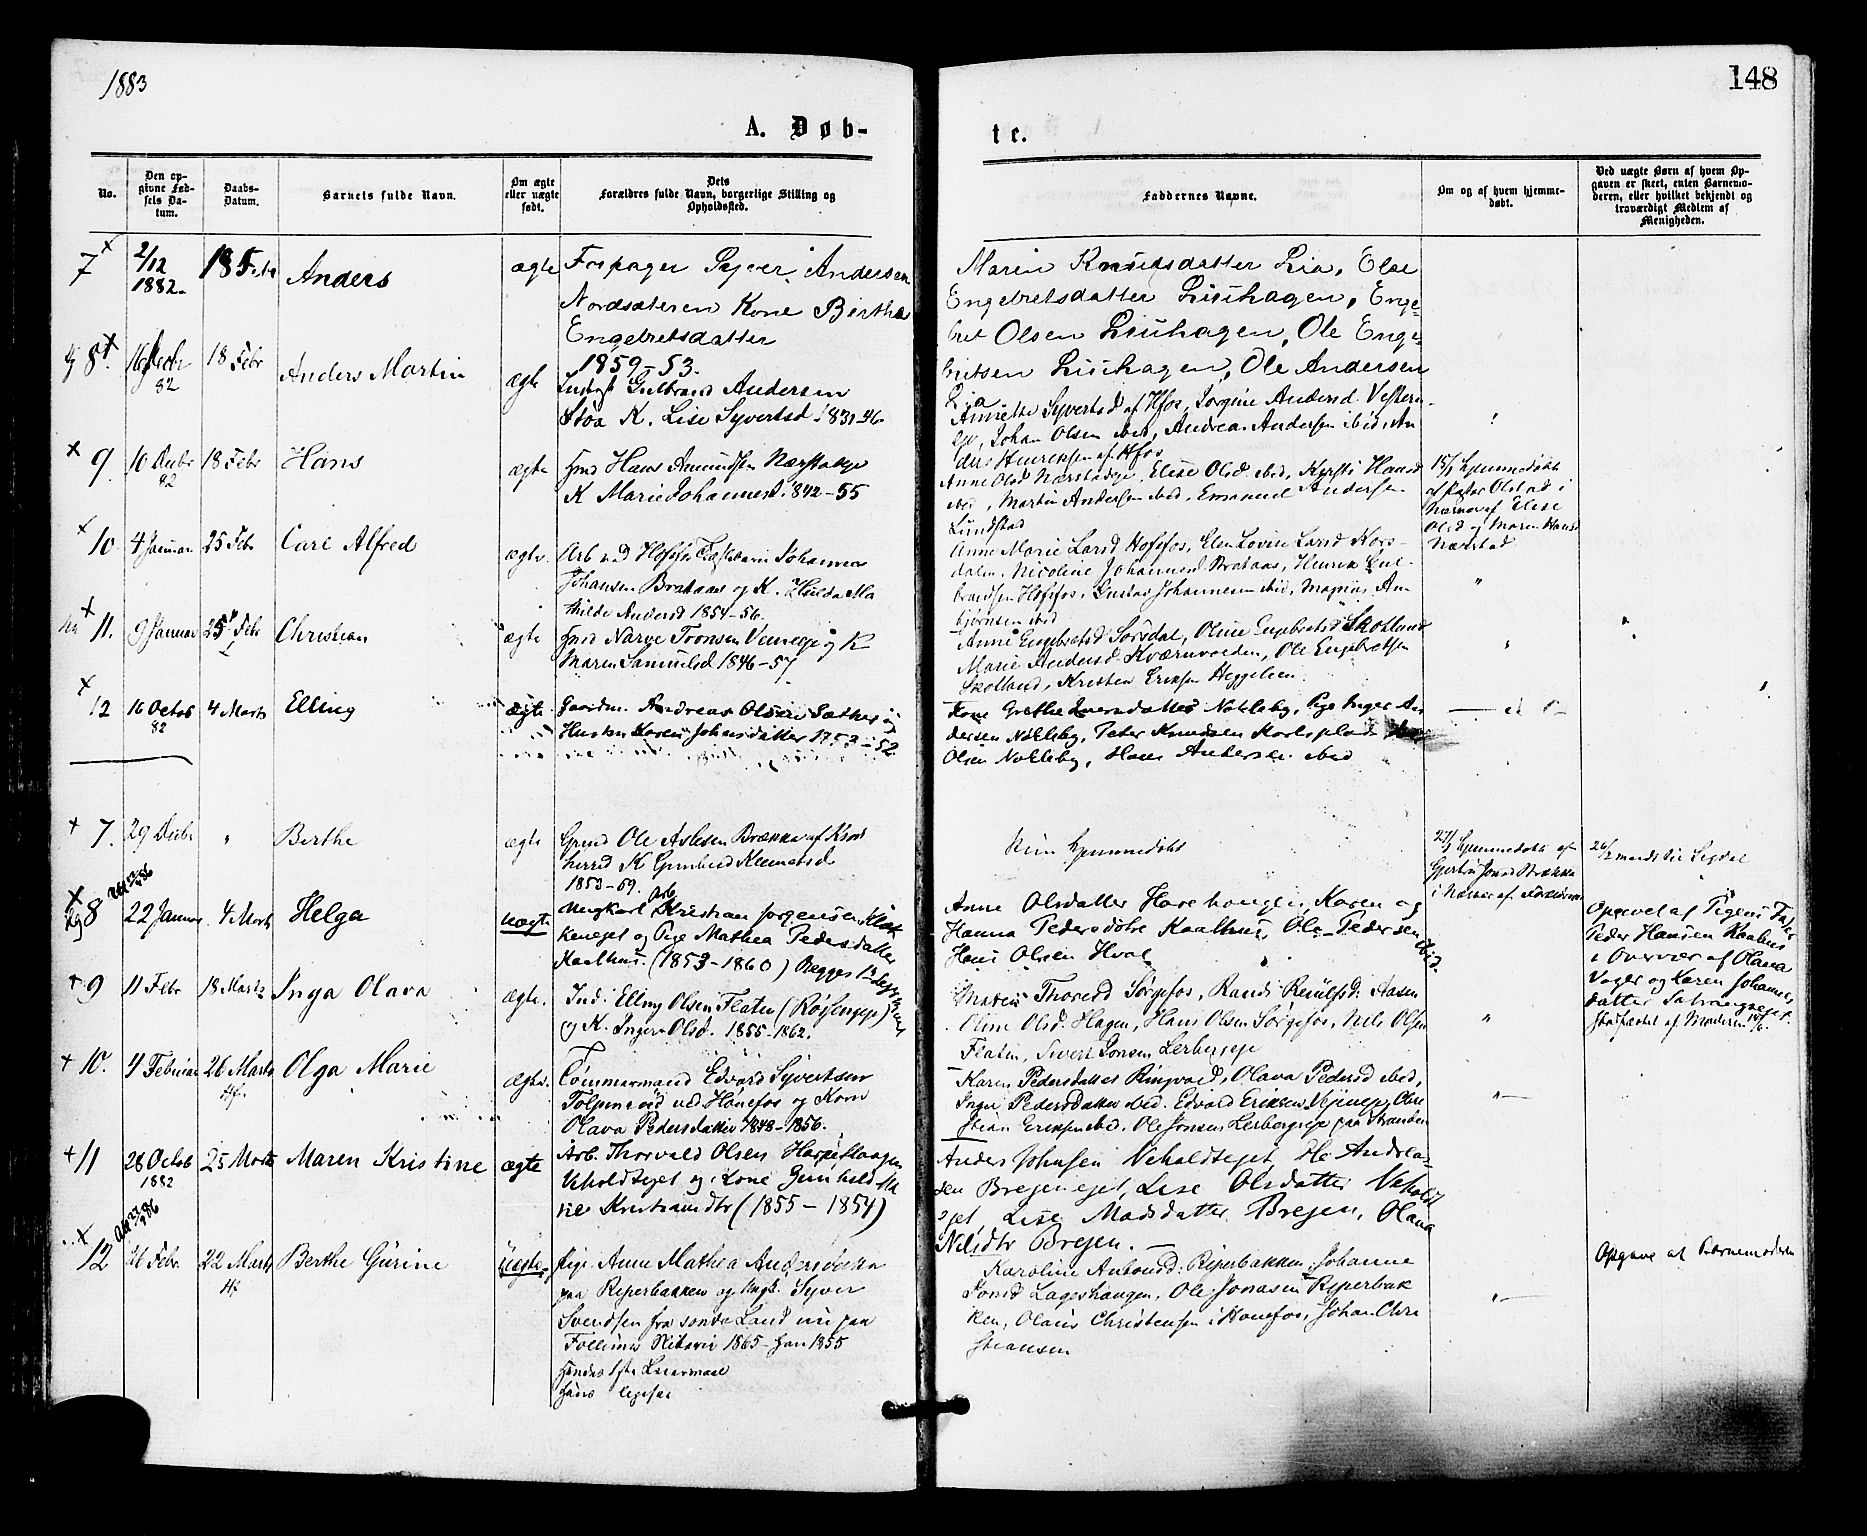 1883
148
A. Døb-
te.
No.
Den op-
givne Fød-
sels Da-
tum.
Daabs-
Datum.
Barnets fulde Navn.
Om ægte
eller uægte
født.
Dets
Forældres fulde Navn, borgerlige Stilling og
Opholdssted.
Faddernes Navne.
Om og af hvem hjemme-
døbt.
Ved uægte Børn af hvem Op-
gaven er skeet, enten Barnemo-
deren, eller hvilket bekjendt og
troværdigt Medlem af
Menigheden.
7
2/12
1882.
18 Febr
Anders
ægte
Forpagter Syver Andersen
Nordsæteren Kone Birthe
Engebretsdatter
1859-53.
Maren Knudsdatter Lia, Else
Engebretsdatter Liuhagen, Enge-
bret Olsen Liuhagen, Ole Enge-
britsen Liuhagen, Ole Andersen
Lia
8
82
18 Febr
Anders Martin
ægte
Gulbrand Andersen
Støa K. Lise Syvertsd. 1831-46
Annette Syvertsd af Hfos, Jorgine Andersd. Vestern-
eje, Johan Olsen ibid, Andrea Andersen ibid, An
ders Henriksen af Hfos
9
10 Decbr
82
18 Febr
Hans
ægte
Hans Amundsen Nærstadeje
K Marie Johannesd. 1842-55
Anne Olsd Nærstadeje, Elise Olsd ibid, Kjersti Hansd
ibid, Martin Andersen ibid, Emanuel Andersen
Lundstad
15/1 hjemmedøbt
af Pastor Olstad i
Nærvær af Elise
Olsd og Maren Hansd
Nærstad
10
4 Januar
25 Febr
Carl Alfred
ægte.
Arb ved Hofsfos Træsliberi Johannes
Johansen Brakaas og K. Hulda Ma
thilde Andersd 1854-56.
Anne Marie Larsd Hofsfos, Elen Lovise Larsd Kors-
dalen, Nicoline Johannesd Brakaas, Henrik Gul-
brandsen Hofsfos, Gustav Johannesen ibid, Magnus An-
bjørnsen ibid
"
11.
9 Januar
25 Febr
Christian
ægte
Narve Tronsen Vemeeje og K
Maren Samuelsd 1846-57
Anne Engebretsd Sørsdal, Oline Engebretsd Skotland
Marie Andersd Kværnvolden, Ole Engebretsen
Skotland, Kristen Eriksen Heggelien.
"
12
16 Octob
82
4 Marts
Elling
ægte
Gaardm. Andreas Olsen Sæther og
Hustru Karen Johnsdatter 1853-52
Kone Grethe Iversdatter Nokleby, Pige Inger An
dersen Nøkleby, Peter Knudsen Korlsplads
Olsen Nokleby, Hans Andersen ibid
7.
29 Decbr
"
Berthe
ægte
Gmd Ole Aslesen Brække af Krøds
herred K Gunhild Klemetsd
1853-59.
hjemmedøbt
27/1 hjemmedøbt af
Gjertru Jonsd Brække
i Nærvær af Forældrene
26/2 meldt til Sigdal
8
22 Januar
4 Marts
Helga
uægte
Ungkarl Arb Kristian Jorgensen Klek
keneget og Pige Mathea Pedersdatter
Kaalhus. (1853-1860) Begges 1ste
Anne Olsdatter Harehaugen, Karen og
Hanna Pedersdøtre Kaalhus, Ole Pedersen ibid.
Hans Olsen Hval
"
Opgivet af Pigens Fader
Peder Hansen Kaalhus
i Overvær af Olava
Vager og Karen Johannes
datter
Stadfæstet af Moderen
9
11 Febr
18 Marts
Inga Olava
ægte.
Ind. Elling Olsen Flaten (Roisengeje)
og K. Inger Olsd. 1855-1862.
Maren Thoresd Sorgefos, Randi Aasen
Oline Olsd. Hagen, Hans Olsen Sorgefos, Nils Olsen
Flaten, Sivert Jonsen Lerbergeje
"
10.
4 Februar
26 Marts
Hf.
Olga Marie
ægte.
Tømmermand Edvard Syvertsen
Tolpinrud ved Hønefos og Kone
Olava Pedersdatter 1848-1856.
Karen Pedersdatter Ringvold, Olava Pedersd ibid,
Inger Pedersdatter ibid. Edvard Eriksen Vejeneje, Chri
stian Eriksen ibid. Ole Jonsen Lerbergeje paa Stranden
"
11
28 Octob
1882
25 Marts
Maren Kristine
ægte
Arb. Thorvald Olsen Harehaugen
Veholdteget og Kone Gunhild Ma
rie Kristiansdtr (1855-1854)
Anders Johnsen Veholdteget, He Andrea-
sen Brejeneget, Lise Olsdatter Vehold
eget, Lise Madsdatter Brejen, Olava
Nilsdtr Brejen.
12
26 Febr
22 Marts
Hf.
Berthe Gurine
Uægte
Pige Anne Mathea Andersdatter
paa Reperbakken og Ungk. Syver
Svendsen fra sondre Land nu paa
Follum 1865-han 1855
Hendes 1ste Leiermaal
hans ligesaa
Karoline Antonsd: Reperbakken, Johanne
Jonsd Lageshaugen, Ole Jonasen Reperbak
ken, Olaus Christensen i Honefos, Johan Chri
stiansen
"
Opgave af Barnemoderen